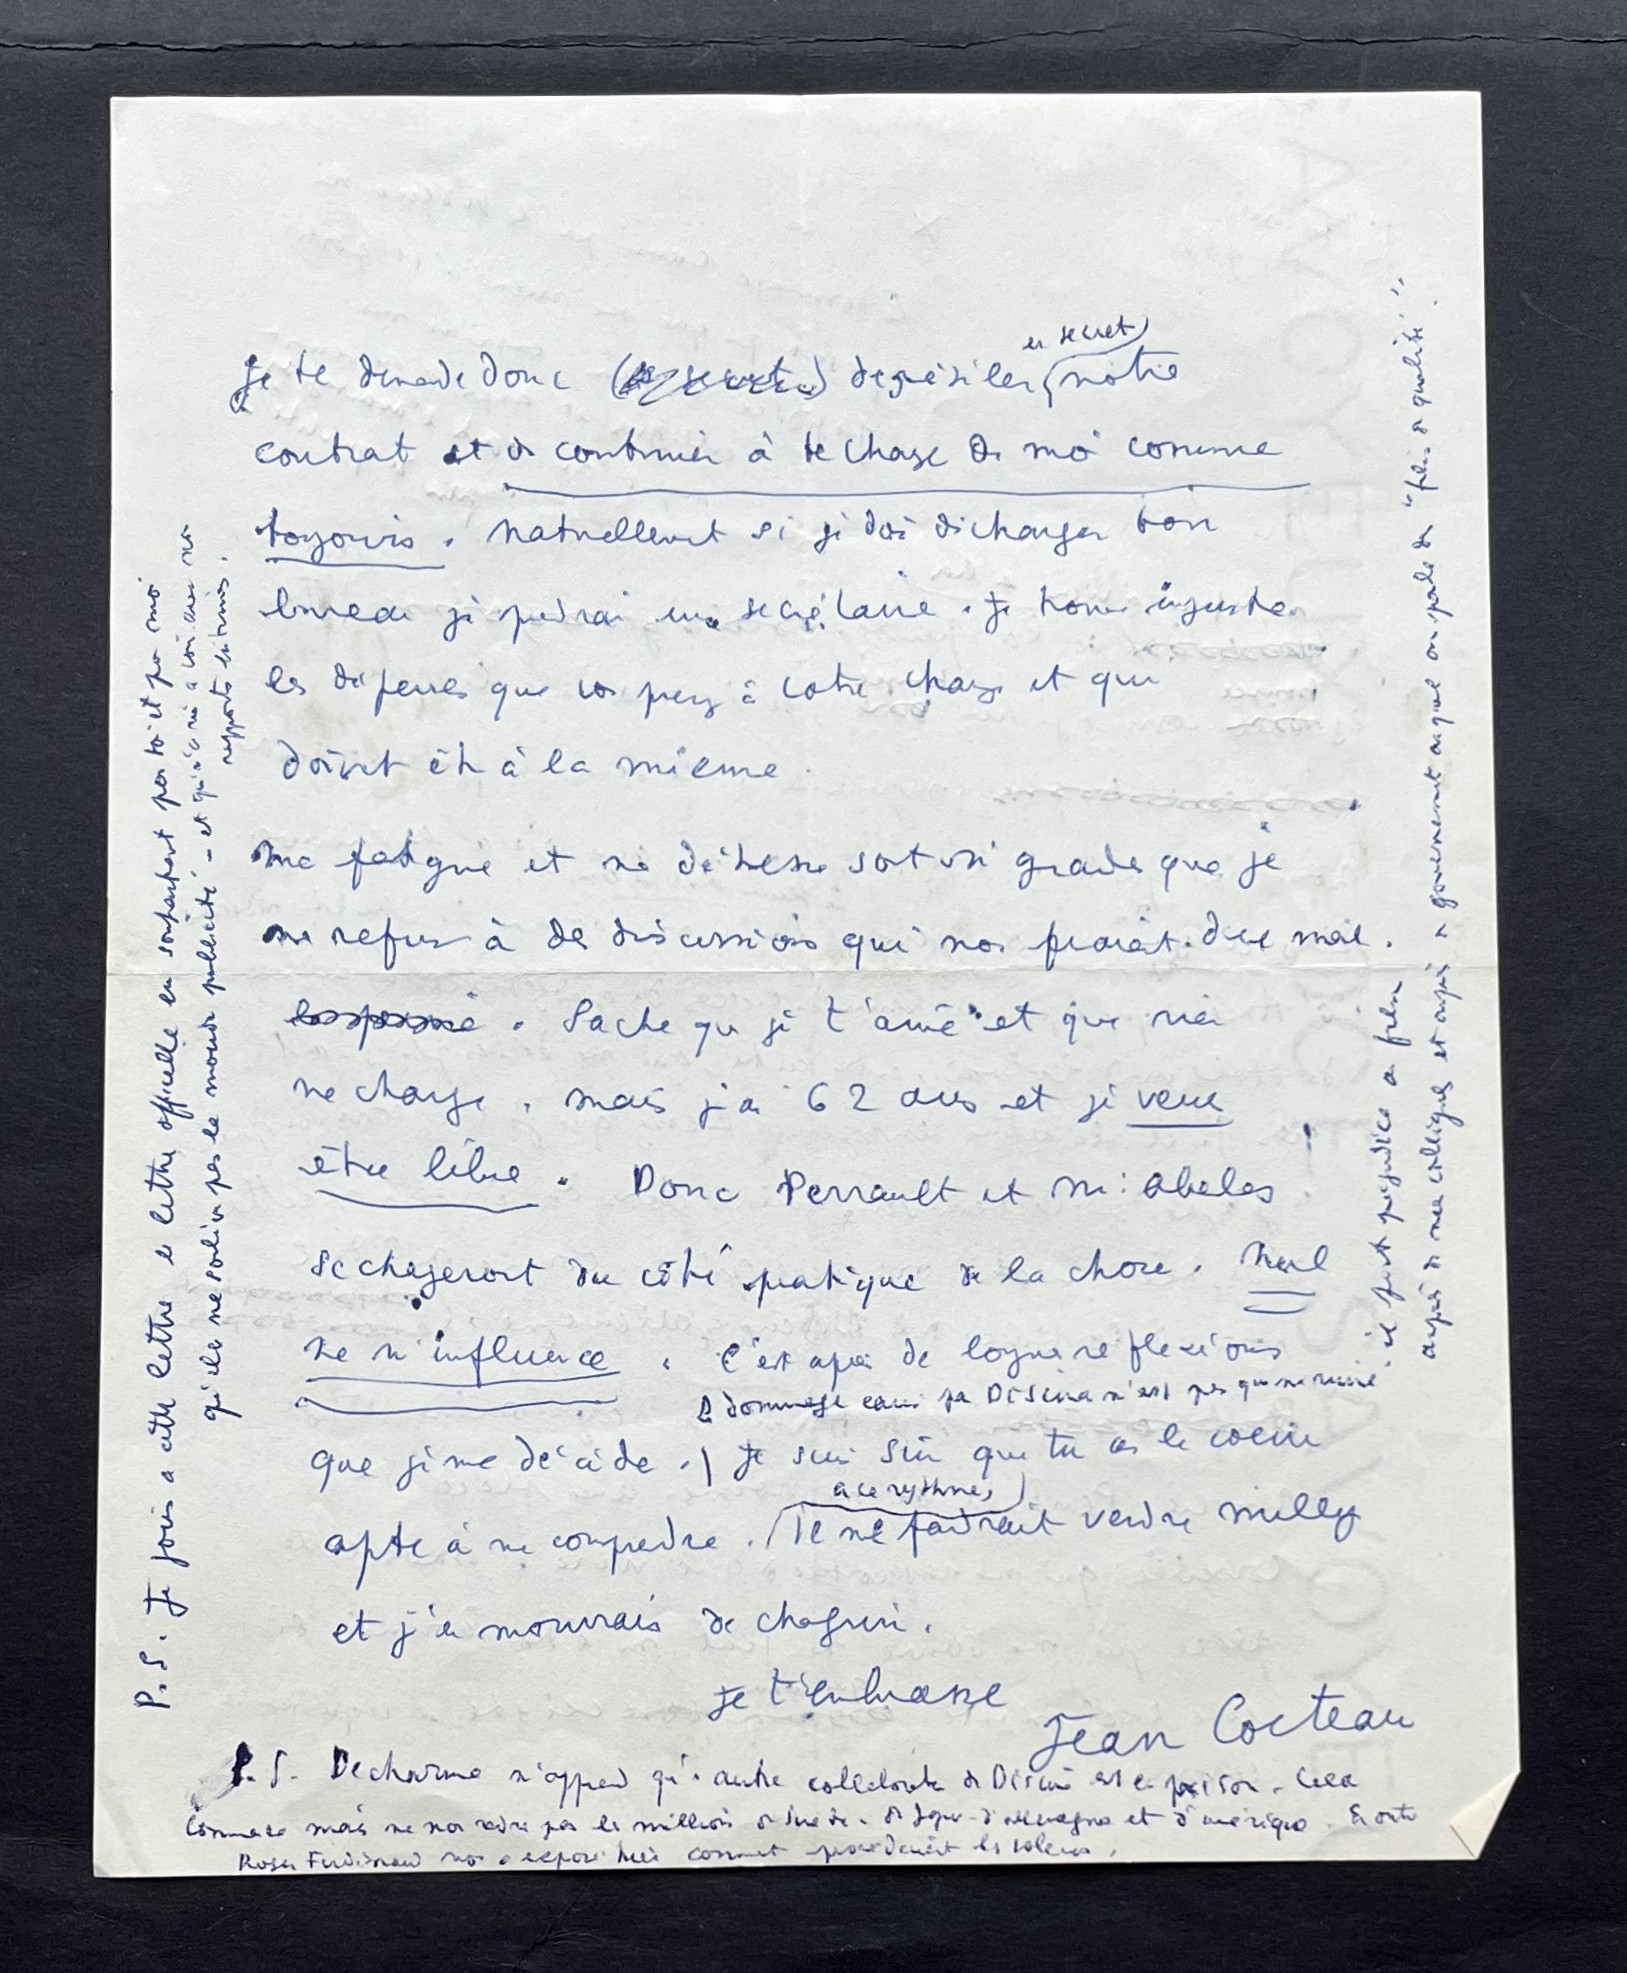 en secret
Je te demande donc de résilier notre
contrat et de continuer à te charger de moi comme
toujours. Naturellement si je dois décharger ton
bureau je prendrai une secrétaire. Je trouve injustes
les dépenses que vous prenez à votre charge et qui
doivent être à la mienne.
Ma fatigue et ma détresse sont si grandes que je
me refuse à des discussions qui nous feraient du mal.
Sache que je t'aime et que rien
ne change. Mais j'ai 62 ans et je veux
être libre. Donc Perrault et M. Abeles
se chargeront du côté pratique de la chose. Nul
ne m'influence. C'est après de longues réflexions
Le dommage causé par Discina n'est pas que me ruiner
que je me décide. Je suis sûr que tu as le coeur
à ce rythme,
apte à me comprendre. Il me faudrait vendre Milly
et j'en mourrais de chagrin.
Je t'embrasse
Jean Cocteau
P.S. Decharme m'apprend qu'un autre collaborateur de Discina est en prison. Cela
commence mais ne nous rendra pas les millions de Suède. de d'Allemagne et d'Amérique. En outre
nous a exposé hier comment procédaient les voleurs.
P.S. Je joins à cette lettre la lettre officielle en par toi et par moi
qu'elle ne soulève pas le monde publicité - et qui n'a rien à voir avec nos
rapports intimes.
il porte préjudice au film
auprès de mes collègues et auprès du gouvernement auquel on parle de "films de qualité".